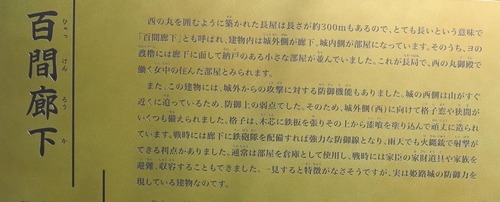 百間廊下
ひゃっ けん ろう か
西の丸を囲むように築かれた長屋は長さが約300mもあるので、とても長いという意味で
「百間廊下」とも呼ばれ、建物内は城外側が廊下、城内側が部屋になっています。そのうち、ヨの
渡櫓には廊下に面して納戸のある小さな部屋が並んでいました。これが長局で、西の丸御殿で
働く女中の住んだ部屋とみられます。
また、この建物には、城外からの攻撃に対する防御機能もありました。城の西側は山がすぐ
近くに迫っているため、防御上の弱点でした。そのため、城外側(西)に向けて格子窓や狭間が
いくつも備えられました。格子は、木芯に鉄板を張りその上から漆喰を塗り込んで頑丈に造られ
ています。戦時には廊下に鉄砲隊を配備すれば強力な防御線となり、雨天でも火縄銃で射撃が
できる利点がありました。通常は部屋を倉庫として使用し、戦時には家臣の家財道具や家族を
避難、収容することもできました。一見すると特徴がなさそうですが、実は姫路城の防御力を
現している建物なのです。